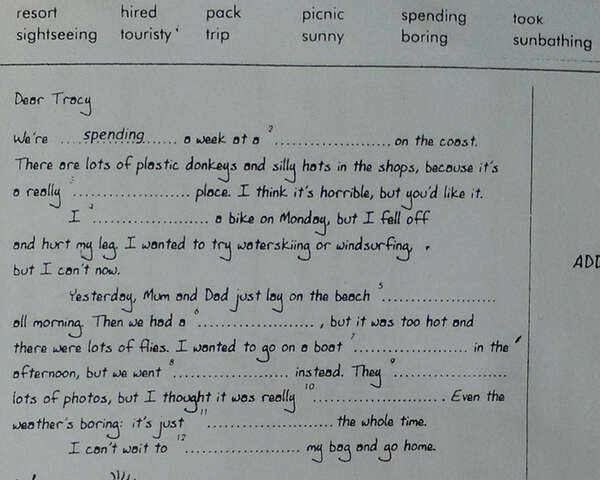 resort hired pack picnic spending took
sightseeing touristy trip sunny boring sunbathing
Dear Tracy
We're .....spending....... a week at a 2...................... on the coast.
There are lots of plastic donkeys and silly hats in the shops, because it's
a really 3...................... place. I think it's horrible, but you'd like it.
I 4...................... a bike on Monday, but I fell off
and hurt my leg. I wanted to try waterskiing or windsurfing,
but I can't now.
Yesterday, Mum and Dad just lay on the beach 5......................
all morning. Then we had a 6...................... , but it was too hot and
there were lots of flies. I wanted to go on a boat 7...................... in the
afternoon, but we went 8...................... instead. They 9......................
lots of photos, but I thought it was really 10...................... . Even the
weather's boring: it's just 11...................... the whole time.
I can't wait to 12...................... my bag and go home.
ADD